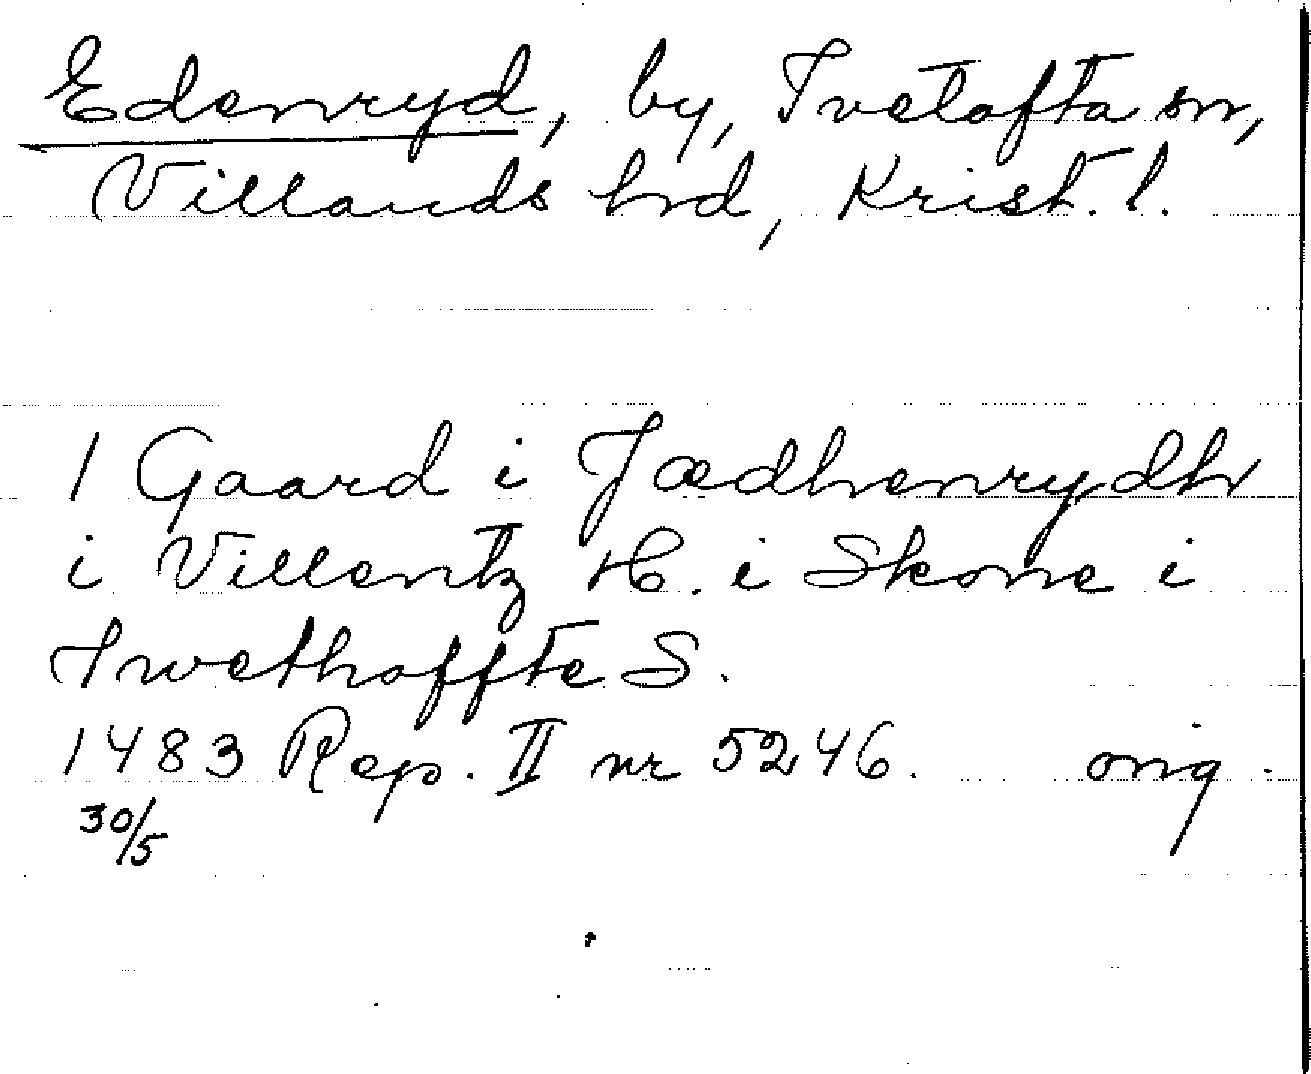 Edenryd, by, Ivetofta sn,
Villands hrd, Krist. l.
1 Gaard i Jædhenrydh
i Villentz H. i Skone i
Iwethoffte S.
1483 Rep. II nr 5246. orig.
30/5